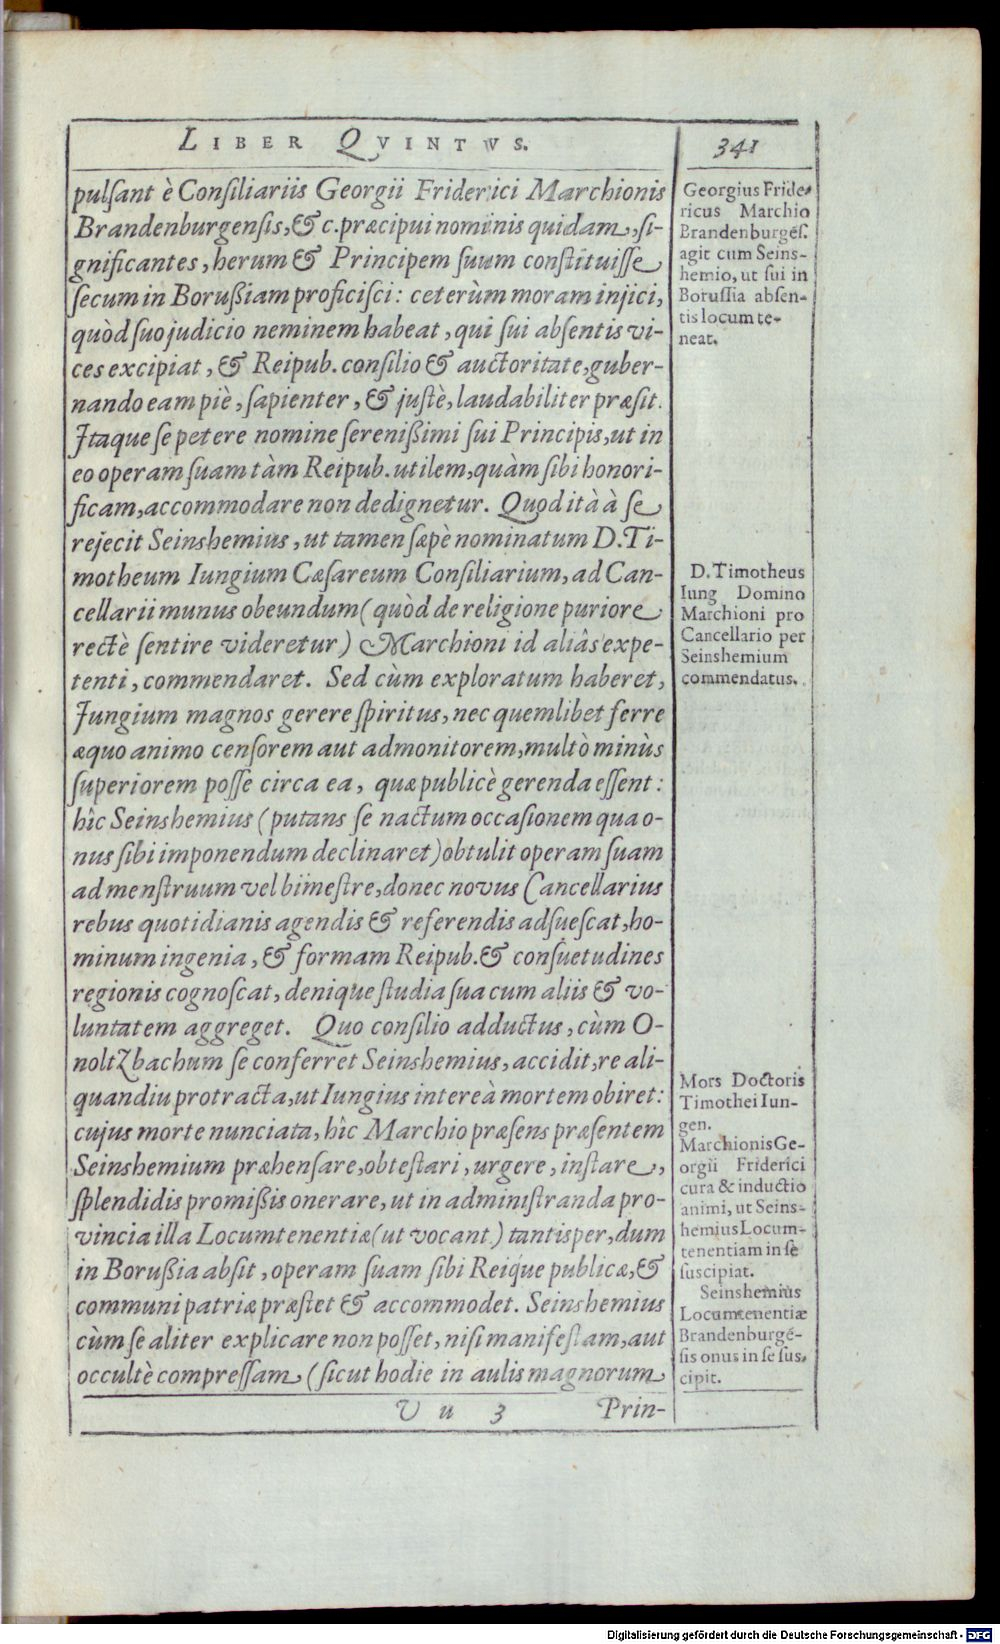 LIBER QVINTVS. 341
pulſant è Conſiliariis Georgii Friderici Marchionis
Brandenburgenſis, & c. præcipui nominis quidam, ſi-
gnificantes, herum & Principem ſuum conſtituiſſe
ſecum in Boruſſiam proficiſci: ceterùm moram injici,
quòd ſuo judicio neminem habeat, qui ſui abſentis vi-
ces excipiat, & Reipub. conſilio & auctoritate, guber-
nando eam piè, ſapienter, & juſtè, laudabiliter præſit.
Itaque ſe petere nomine ſereniſſimi ſui Principis, ut in
eo operam ſuam tàm Reipub. utilem, quàm ſibi honori-
ficam, accommodare non dedignetur. Quod ità à ſe
rejecit Seinshemius, ut tamen ſæpè nominatum D. Ti-
motheum Iungium Cæſareum Conſiliarium, ad Can-
cellarii munus obeundum (quòd de religione puriore
rectè ſentire videretur) Marchioni id aliâs expe-
tenti, commendaret. Sed cùm exploratum haberet,
Iungium magnos gerere ſpiritus, nec quemlibet ferre
æquo animo cenſorem aut admonitorem, multò minùs
ſuperiorem poſſe circa ea, quæ publicè gerenda eſſent:
hîc Seinshemius (putans ſe nactum occaſionem qua o-
nus ſibi imponendum declinaret) obtulit operam ſuam
ad menſtruum vel bimeſtre, donec novus Cancellarius
rebus quotidianis agendis & referendis adſueſcat, ho-
minum ingenia, & formam Reipub. & conſuetudines
regionis cognoſcat, denique ſtudia ſua cum aliis & vo-
luntatem aggreget. Quo conſilio adductus, cùm O-
noltzbachum ſe conferret Seinshemius, accidit, re ali-
quandiu protracta, ut Iungius intereà mortem obiret:
cujus morte nunciata, hîc Marchio præſens præſentem
Seinshemium præhenſare, obteſtari, urgere, inſtare,
ſplendidis promiſſis onerare, ut in adminiſtranda pro-
vincia illa Locumtenentiæ (ut vocant) tantisper, dum
in Boruſſia abſit, operam ſuam ſibi Reique publicæ, &
communi patriæ præſtet & accommodet. Seinshemius
cùm ſe aliter explicare non poſſet, niſi manifeſtam, aut
occultè compreſſam (ſicut hodie in aulis magnorum
V u 3 Prin-
Georgius Fride-
ricus Marchio
Brandenburgēſ.
agit cum Seins-
hemio, ut ſui in
Boruſſia abſen-
tis locum te-
neat.
D. Timotheus
Iung Domino
Marchioni pro
Cancellario per
Seinshemium
commendatus.
Mors Doctoris
Timothei Iun-
gen.
Marchionis Ge-
orgii Friderici
cura & inductio
animi, ut Seins-
hemius Locum-
tenentiam in ſe
ſuscipiat.
Seinshemius
Locumtenentiæ
Brandenburgē-
ſis onus in ſe ſus-
cipit.
Digitalisierung gefördert durch die Deutsche Forschungsgemeinschaft - DFG